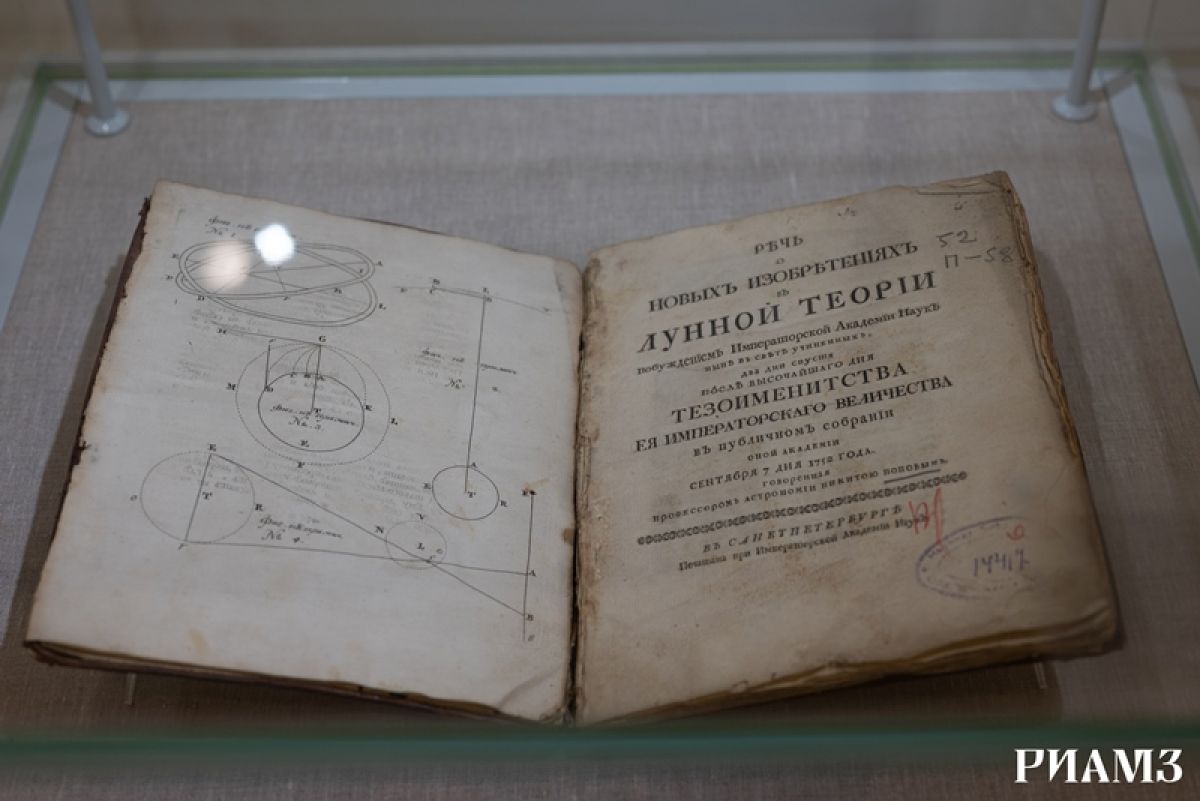 № 1.
E
A
F
I
D
B
L
L
C
B
H
G
№
2.
M
D
E
B
A
K
T
L
№ 3.
E
F
A
E
T
R
F
E
O
T
R
N
V
L
№ 4.
F
A
B
РѢЧЬ
О
НОВЫХЪ ИЗОБРѢТЕНІЯХЪ
ВЪ
ЛУННОЙ ТЕОРІИ
побужденіемъ Императорской Академіи Наукъ
нынѣ въ свѣтѣ учиненныхъ,
два дни спустя
ПОСЛѢ ВЫСОЧАЙШАГО ДНЯ
ТЕЗОИМЕНИТСТВА
ЕЯ ИМПЕРАТОРСКАГО ВЕЛИЧЕСТВА
ВЪ ПУБЛИЧНОМЪ СОБРАНІИ
ОНОЙ АКАДЕМІИ
СЕНТЯБРЯ 7 ДНЯ 1752 ГОДА.
говоренная
ПРОФЕССОРОМЪ АСТРОНОМІИ НИКИТОЮ ПОПОВЫМЪ.
ВЪ САНКТПЕТЕРБУРГѢ
Печатана при Императорской Академіи Наукъ
52
П-58
14417
РИАМЗ